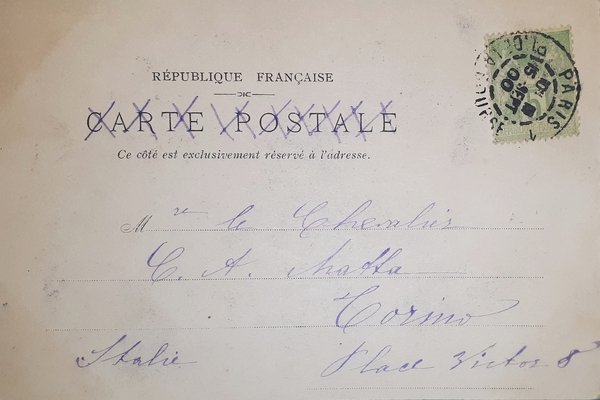 RÉPUBLIQUE FRANÇAISE
CARTE POSTALE
Ce côté est exclusivement réservé à l'adresse.
M re le Chevalier
C. A. Matta
Torino
Italie Place Victor 8
PARIS
15
SEPT
00